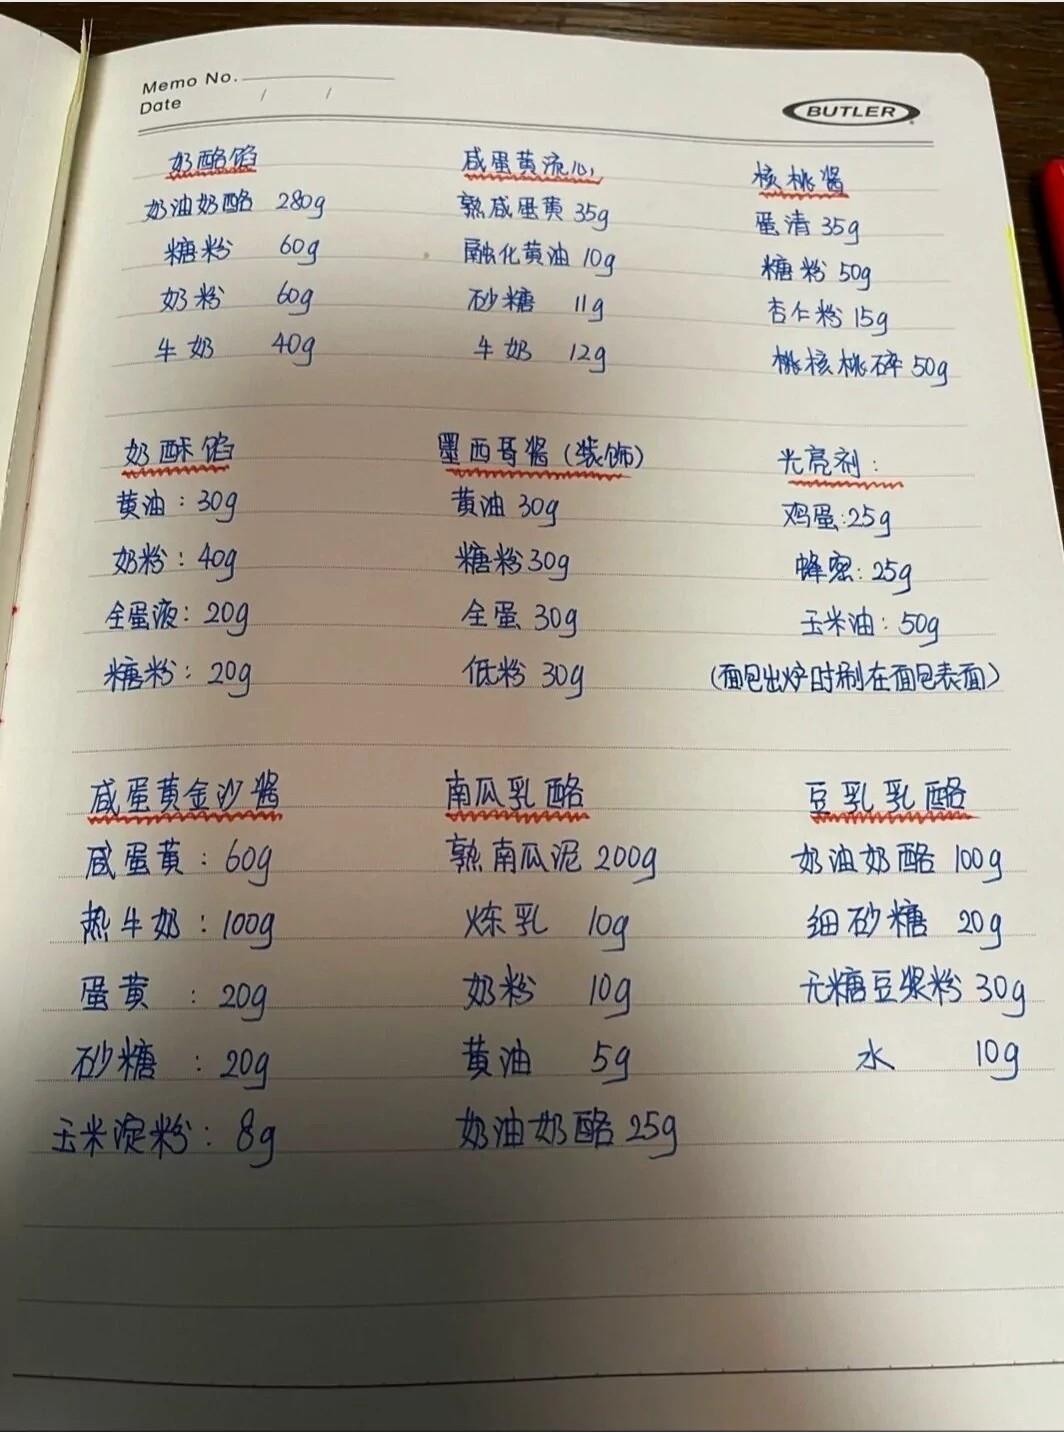 Memo No.
Date / /
BUTLER
奶酪馅
奶油奶酪 280g
糖粉 60g
奶粉 60g
牛奶 40g
咸蛋黄流心
熟咸蛋黄 35g
融化黄油 10g
砂糖 11g
牛奶 12g
核桃酱
蛋清 35g
糖粉 50g
杏仁粉 15g
桃核桃碎 50g
奶酥馅
黄油：30g
奶粉：40g
全蛋液：20g
糖粉：20g
墨西哥酱（装饰）
黄油 30g
糖粉 30g
全蛋 30g
低粉 30g
光亮剂：
鸡蛋：25g
蜂蜜：25g
玉米油：50g
（面包出炉时刷在面包表面）
咸蛋黄金沙酱
咸蛋黄：60g
热牛奶：100g
蛋黄：20g
砂糖：20g
玉米淀粉：8g
南瓜乳酪
熟南瓜泥 200g
炼乳 10g
奶粉 10g
黄油 5g
奶油奶酪 25g
豆乳乳酪
奶油奶酪 100g
细砂糖 20g
无糖豆浆粉 30g
水 10g